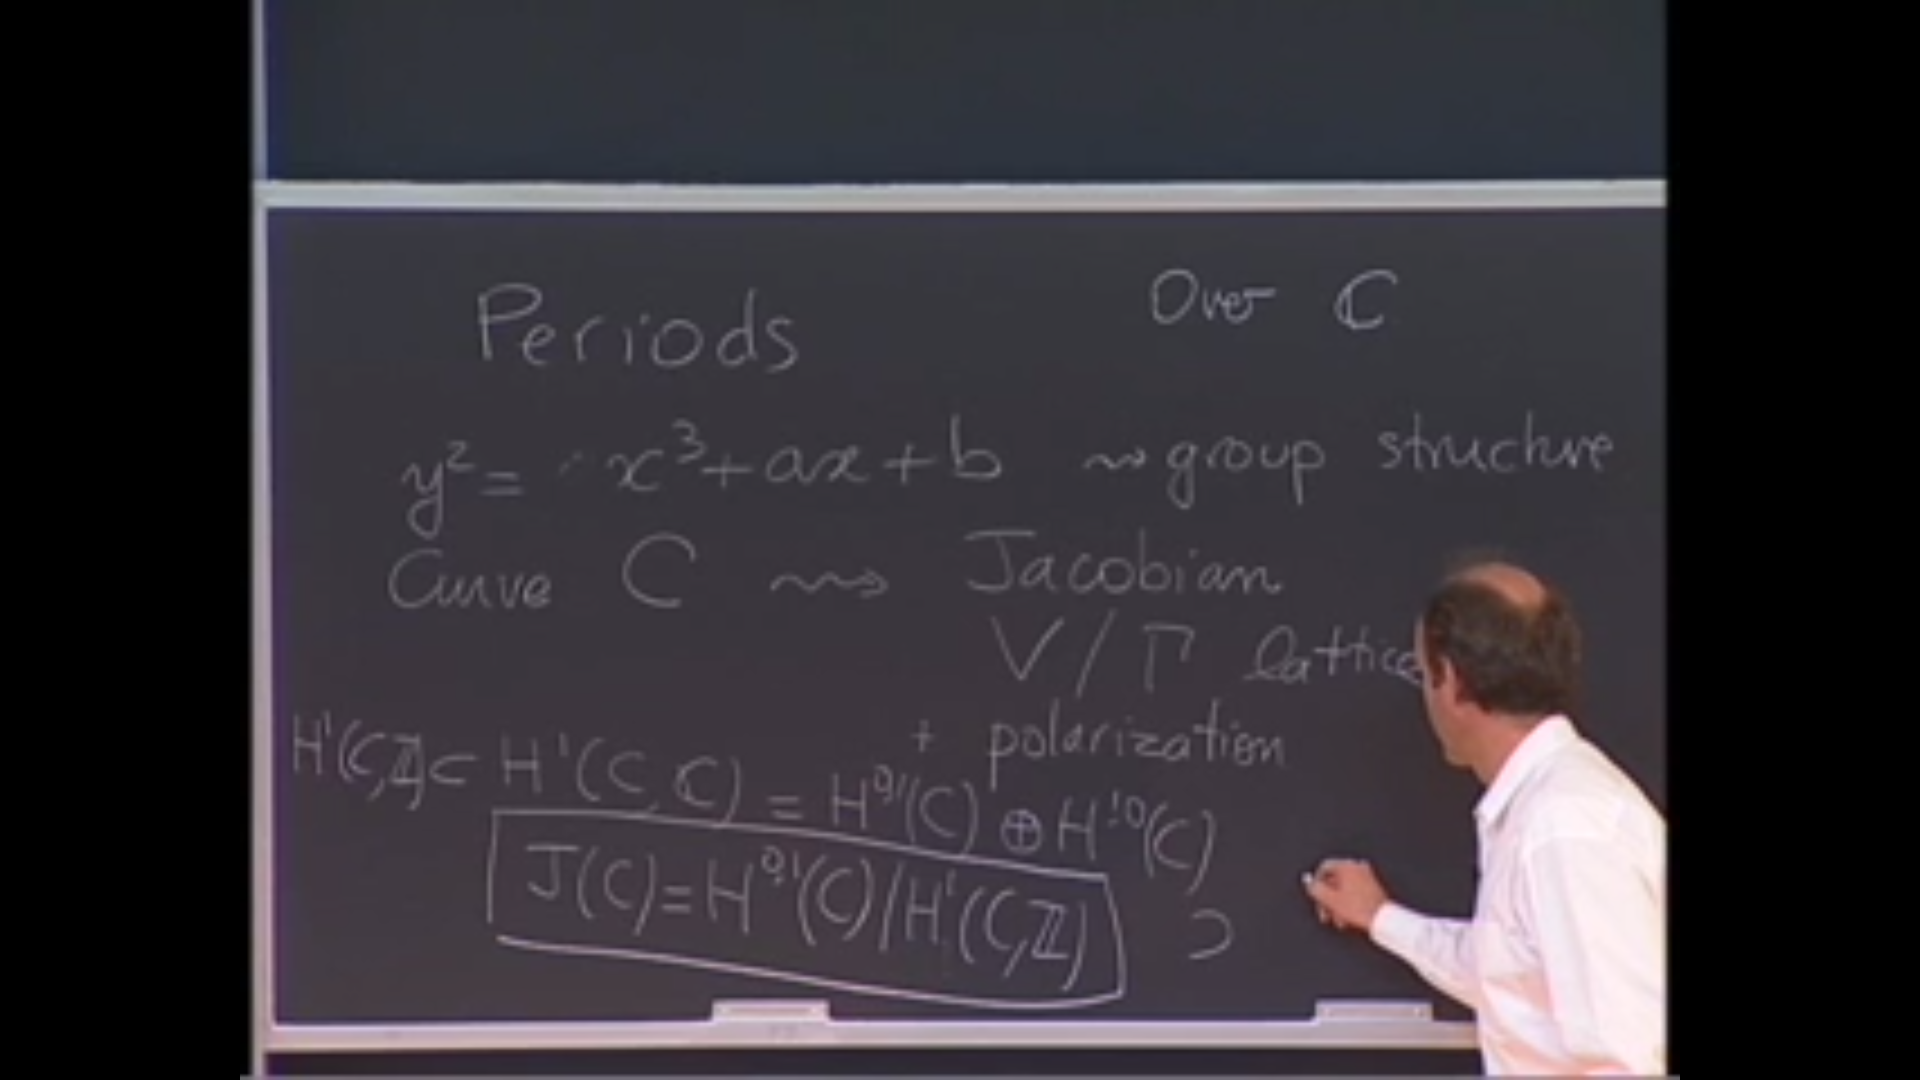 Periods
Over ℂ
y² = x³ + ax + b ⇝ group structure
Curve C ⇝ Jacobian
V / Γ lattice
+ polarization
H¹(C,ℤ) ⊂ H¹(C,ℂ) = H⁰'¹(C) ⊕ H¹'⁰(C)
J(C) = H⁰'¹(C) / H¹(C,ℤ) ⊃